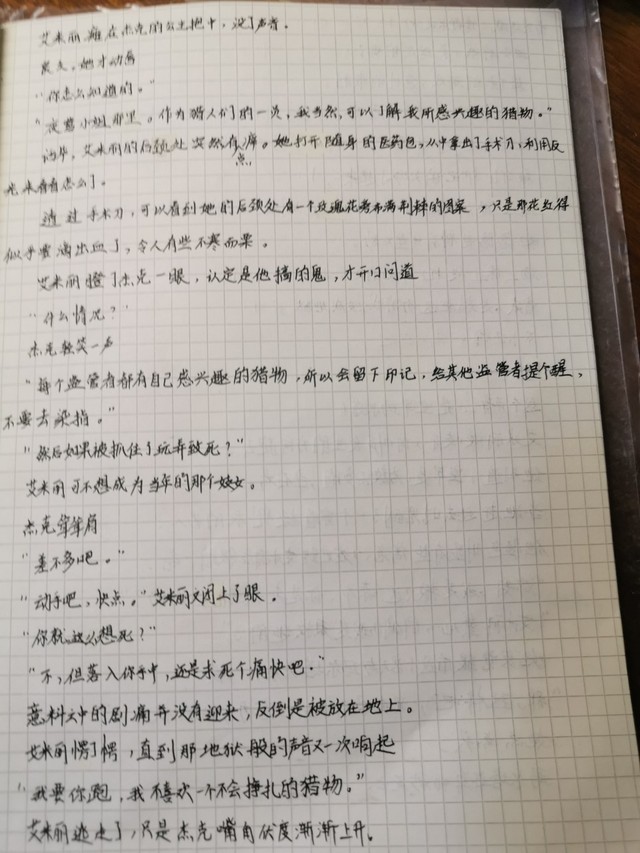 艾米丽瘫在杰克的公主抱中，没了声音。
良久，她才动唇
"你怎么知道的。"
"夜莺小姐那里。作为猎人们的一员，我当然可以了解我所感兴趣的猎物。"
话毕，艾米丽的后颈处突然有点痒。她打开随身的医药包，从中拿出了手术刀，利用反
光来看看怎么了。
透过手术刀，可以看到她的后颈处有一个玫瑰花旁布满荆棘的图案，只是那花红得
似乎要滴出血了，令人有些不寒而栗。
艾米丽瞪了杰克一眼，认定是他搞的鬼，才开口问道
"什么情况？"
杰克轻笑一声
"每个监管者都有自己感兴趣的猎物，所以会留下印记，给其他监管者提个醒，
不要去染指。"
"然后如果被抓住了玩弄致死？"
艾米丽可不想成为当年的那个妓女。
杰克耸耸肩
"差不多吧。"
"动手吧，快点。"艾米丽又闭上了眼。
"你就这么想死？"
"不，但落入你手中，还是求死个痛快吧。"
意料之中的剧痛并没有迎来，反倒是被放在地上。
艾米丽愣了愣，直到那地狱般的声音又一次响起
"我要你跑，我不喜欢一个不会挣扎的猎物。"
艾米丽逃走了，只是杰克嘴角伏度渐渐上升。